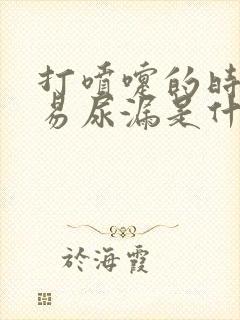 打喷嚏的时
易尿漏是什
於海霞